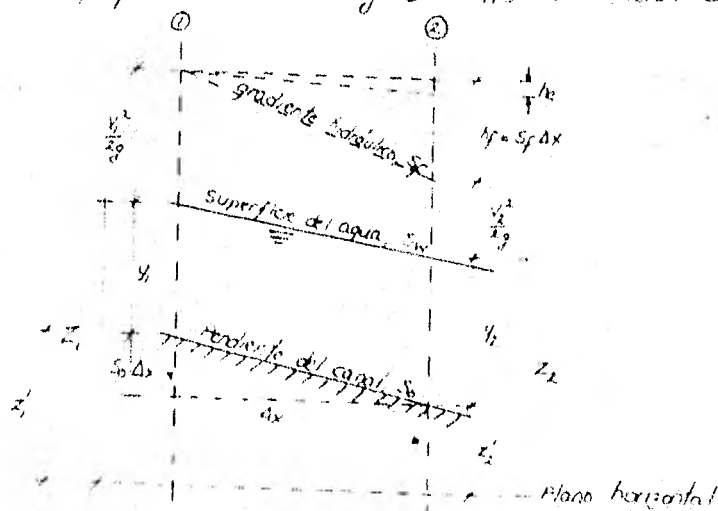 ① ②
he
gradiente hidráulico, Sf
hf = Sf Δx
V₁²/2g
Superficie del agua, Sw
V₂²/2g
y₁
y₂
Z₁
Pendiente del canal, S₀
S₀ Δx
Z₂
Δx
Z₁'
Z₂'
Plano horizontal